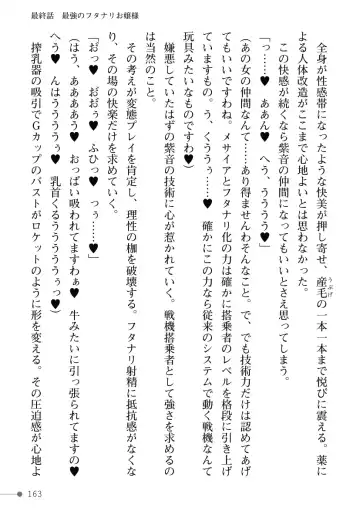 最終話　最強のフタナリお嬢様
全身が性感帯になったような快美が押し寄せ、産毛の一本一本まで悦びに震える。薬に
うぶげ
よる人体改造がここまで心地よいとは思わなかった。
この快感が続くなら紫音の仲間になってもいいとさえ思ってしまう。
「っ……♥　ああん♥　へう、うううう♥」
（あの女の仲間なんて……あり得ませんわそんなこと。で、でも技術力だけは認めてあげ
てもいいですわね。メサイアとフタナリ化の力は確かに搭乗者のレベルを格段に引き上げ
ていますもの。う、くううぅ……♥　確かにこの力なら従来のシステムで動く戦機なんて
玩具みたいなものですわ♥）
嫌悪していたはずの紫音の技術に心が惹かれていく。戦機搭乗者として強さを求めるの
は当然のこと。
その考えが変態プレイを肯定し、理性の枷を破壊する。フタナリ射精に抵抗感がなくな
り、その場の快楽だけを求めていく。
「おっ♥　おおぉ♥　ふひっ♥　つぅ……♥」
（はう、ああああう♥　おっぱい吸われてますわぁ♥　牛みたいに引っ張られてますの♥
へうぅ♥　んはうううぅぅ♥　乳首くるうううううぅっ♥）
搾乳器の吸引でGカップのバストがロケットのように形を変える。その圧迫感が心地よ
163